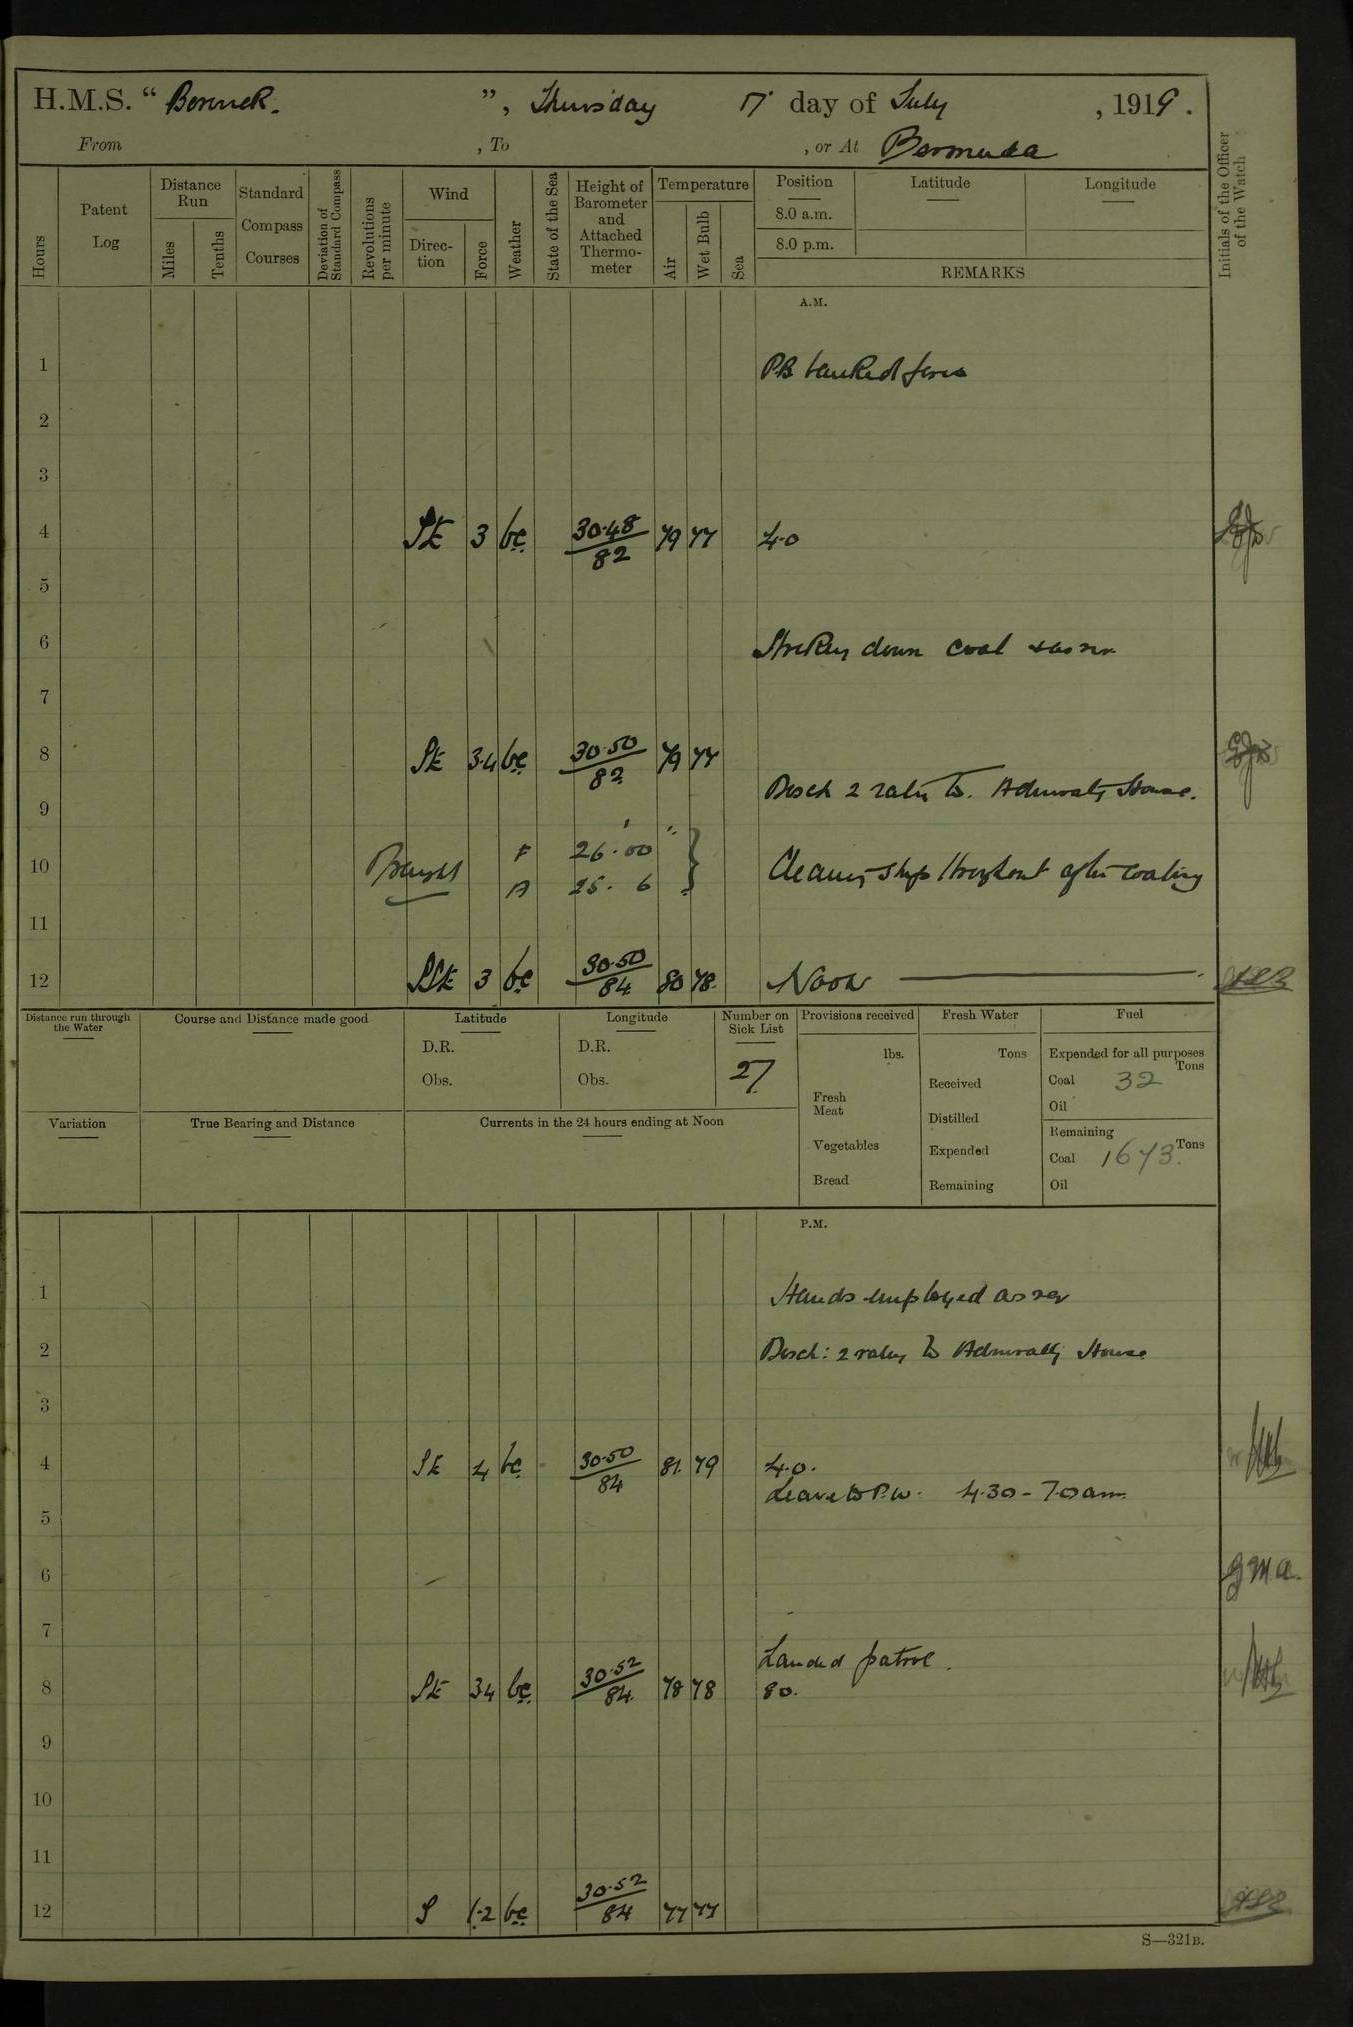 H.M.S. “ Berwick. ”, Thursday 17 day of July , 1919.
From , To , or At Bermuda
Hours
Patent Log
Distance Run
Miles
Tenths
Standard Compass Courses
Deviation of Standard Compass
Revolutions per minute
Wind
Direc-tion
Force
Weather
State of the Sea
Height of Barometer and Attached Thermo-meter
Temperature
Air
Wet Bulb
Sea
Position
8.0 a.m.
8.0 p.m.
Latitude
Longitude
REMARKS
Initials of the Officer of the Watch
A.M.
1 P.B banked fires
2
3
4 SE 3 bc 30.48/82 79 77 4.0
5
6 Striking down coal
7
8 SE 3.4 bc 30.50/82 79 77
Disch 2 ratgs to Admiralty House.
9
10 Draught F 26' 00" Cleaning ship throughout after coaling
A 25. 6
11
12 SSE 3 bc 30.50/84 80 78 Noon
Distance run through the Water
Course and Distance made good
Latitude
D.R.
Obs.
Longitude
D.R.
Obs.
Number on Sick List
27
Provisions received
lbs.
Fresh Meat
Vegetables
Bread
Fresh Water
Tons
Received
Distilled
Expended
Remaining
Fuel
Expended for all purposes
Tons
Coal 32
Oil
Remaining
Tons
Coal 1673.
Oil
Variation
True Bearing and Distance
Currents in the 24 hours ending at Noon
P.M.
1 Hands employed as req
2 Disch: 2 ratgs to Admiralty House
3
4 SE 4 bc 30.50/84 81 79 4.0.
Leave to P.W. 4.30 - 7.0 am.
5
6 G.M.A.
7
Landed patrol.
8 SE 34 bc 30.52/84 78 78 80.
9
10
11
12 S 1-2 bc 30.52/84 77 77
S—321B.